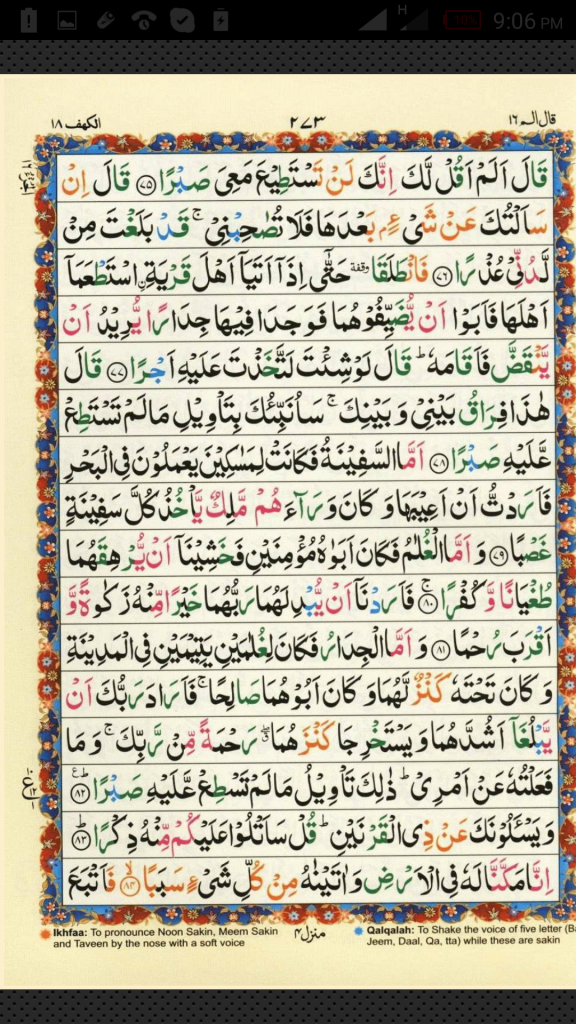 H 10% 9:06 PM
الكهف ١٨ ٢٧٣ قال الم ١٦
قَالَ اَلَمْ اَقُلْ لَّكَ اِنَّكَ لَنْ تَسْتَطِيْعَ مَعِيَ صَبْرًا ﴿٧٥﴾ قَالَ اِنْ
سَاَلْتُكَ عَنْ شَيْءٍۭ بَعْدَهَا فَلَا تُصٰحِبْنِيْ ۚ قَدْ بَلَغْتَ مِنْ
لَّدُنِّيْ عُذْرًا ﴿٧٦﴾ فَانْطَلَقَا وقفة حَتّٰۤى اِذَاۤ اَتَيَاۤ اَهْلَ قَرْيَةِ ۟اسْتَطْعَمَاۤ
اَهْلَهَا فَاَبَوْا اَنْ يُّضَيِّفُوْهُمَا فَوَجَدَا فِيْهَا جِدَارًا يُّرِيْدُ اَنْ
يَّنْقَضَّ فَاَقَامَهٗ ؕ قَالَ لَوْ شِئْتَ لَتَّخَذْتَ عَلَيْهِ اَجْرًا ﴿٧٧﴾ قَالَ
هٰذَا فِرَاقُ بَيْنِيْ وَبَيْنِكَ ۚ سَاُنَبِّئُكَ بِتَاْوِيْلِ مَا لَمْ تَسْتَطِعْ
عَّلَيْهِ صَبْرًا ﴿٧٨﴾ اَمَّا السَّفِيْنَةُ فَكَانَتْ لِمَسٰكِيْنَ يَعْمَلُوْنَ فِي الْبَحْرِ
فَاَرَدْتُّ اَنْ اَعِيْبَهَا وَكَانَ وَرَآءَهُمْ مَّلِكٌ يَّاْخُذُ كُلَّ سَفِيْنَةٍ
غَصْبًا ﴿٧٩﴾ وَاَمَّا الْغُلٰمُ فَكَانَ اَبَوٰهُ مُؤْمِنَيْنِ فَخَشِيْنَاۤ اَنْ يُّرْهِقَهُمَا
طُغْيَانًا وَّكُفْرًا ۚ﴿٨٠﴾ فَاَرَدْنَاۤ اَنْ يُّبْدِلَهُمَا رَبُّهُمَا خَيْرًا مِّنْهُ زَكٰوةً وَّ
اَقْرَبَ رُحْمًا ﴿٨١﴾ وَاَمَّا الْجِدَارُ فَكَانَ لِغُلٰمَيْنِ يَتِيْمَيْنِ فِي الْمَدِيْنَةِ
وَكَانَ تَحْتَهٗ كَنْزٌ لَّهُمَا وَكَانَ اَبُوْهُمَا صَالِحًا ۚ فَاَرَادَ رَبُّكَ اَنْ
يَّبْلُغَاۤ اَشُدَّهُمَا وَيَسْتَخْرِجَا كَنْزَهُمَا ۖ رَحْمَةً مِّنْ رَّبِّكَ ۚ وَمَا
فَعَلْتُهٗ عَنْ اَمْرِيْ ؕ ذٰلِكَ تَاْوِيْلُ مَا لَمْ تَسْطِعْ عَّلَيْهِ صَبْرًا ﴿٨٢﴾ؕ
وَيَسْـَٔلُوْنَكَ عَنْ ذِي الْقَرْنَيْنِ ؕ قُلْ سَاَتْلُوْا عَلَيْكُمْ مِّنْهُ ذِكْرًا ﴿٨٣﴾ؕ
اِنَّا مَكَّنَّا لَهٗ فِي الْاَرْضِ وَاٰتَيْنٰهُ مِنْ كُلِّ شَيْءٍ سَبَبًا ۙ﴿٨٤﴾ فَاَتْبَعَ
منزل ٤
Ikhfaa: To pronounce Noon Sakin, Meem Sakin
and Taveen by the nose with a soft voice
Qalqalah: To Shake the voice of five letter (Ba
Jeem, Daal, Qa, tta) while these are sakin